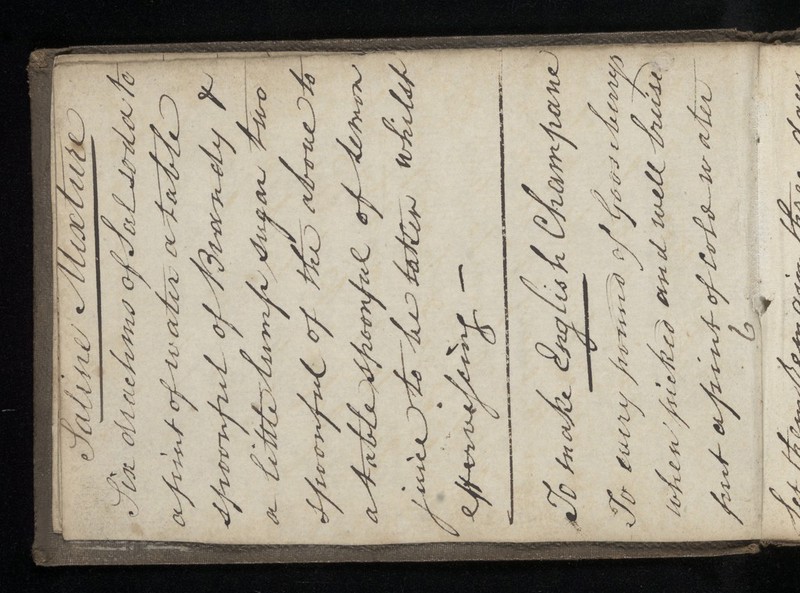 Saline Mixture
Six drachms of Sal soda to
a pint of water a table
spoonful of Brandy &
a little lump sugar two
spoonful of the above to
a table spoonful of lemon
juice to be taken whilst
effervesing —
To make English Champane
To every pound of Gooseberrys
when picked and well bruise
put a pint of cold water
let them Remain three days